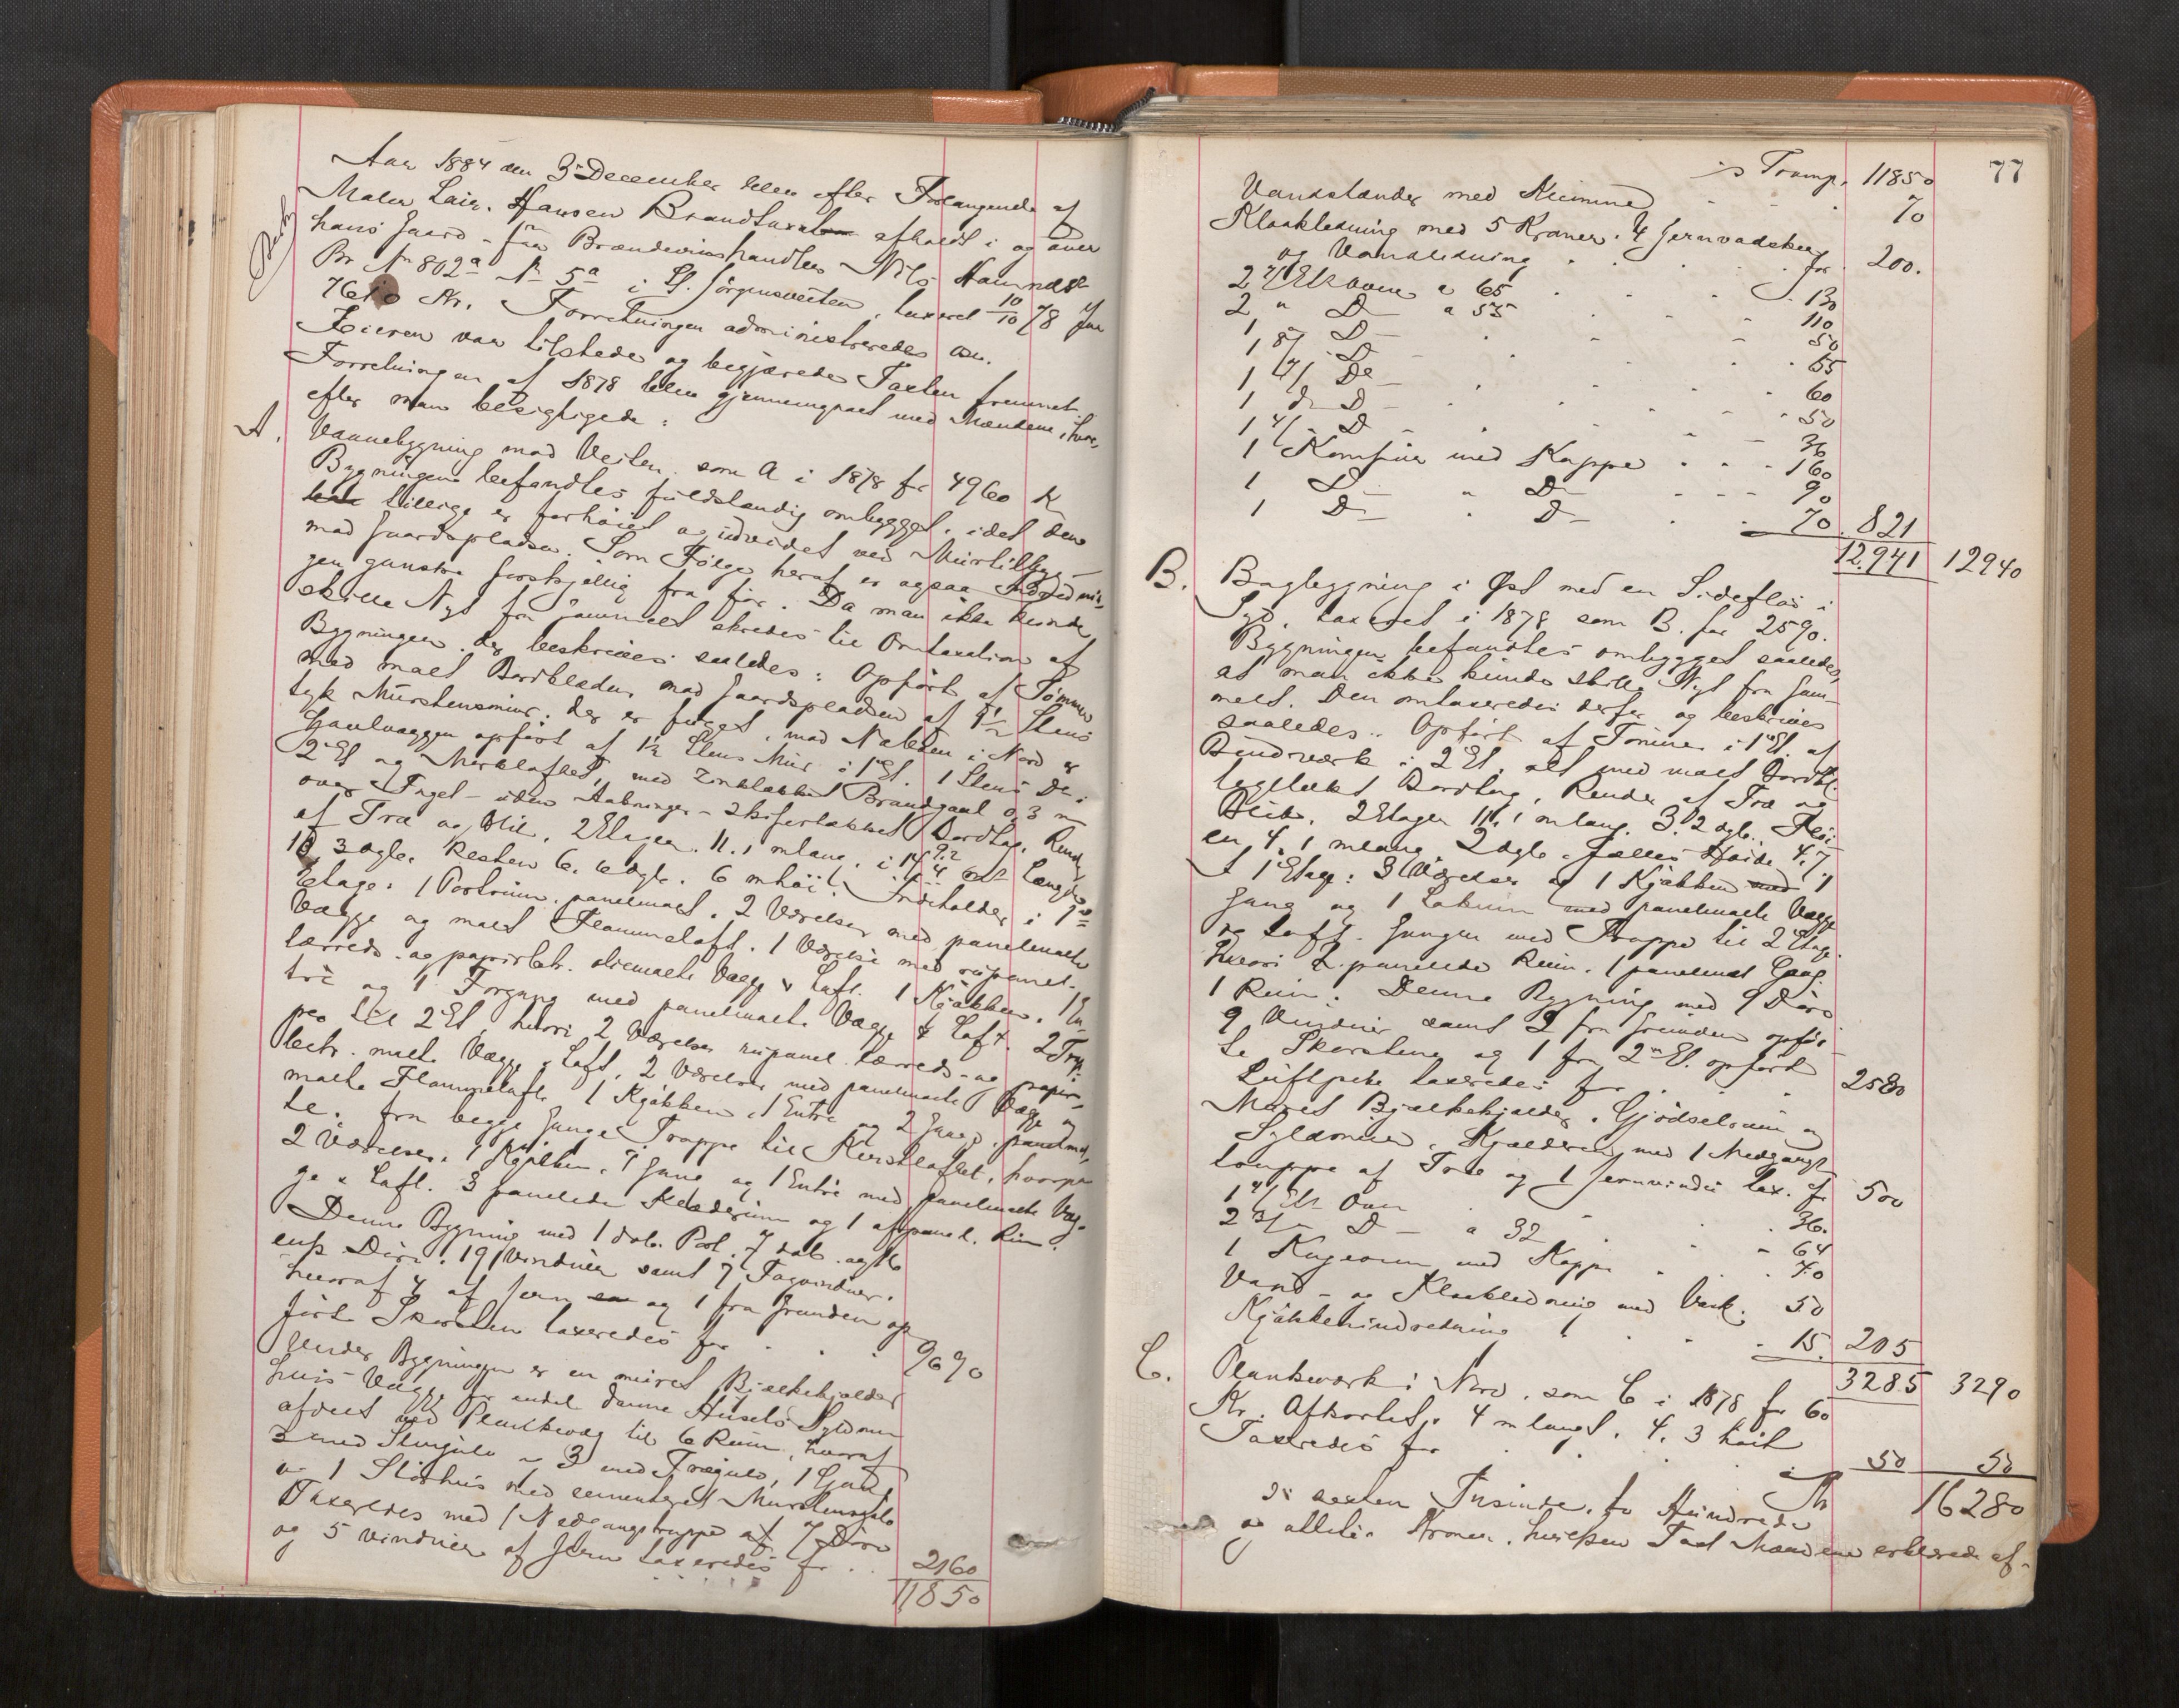 Aar 1884 den 3 December blev efter Forlangende af
Maler Laur. Hansen Brandtaxt afholdt i og over
hans Gaard - før Brændevinshandler Nils
Br No 802a No 5a i St. Jörgensveiten, taxeret 10/10 78 for
7610 Kr. Forretningen administreredes osv.
Eieren var tilstede og begjærede Taxten fremmet
Forretningen af 1878 blev gjennemgaaet med Mændene, hvor-
efter man besigtigede:
A. Vaanebygning mod Veiten. som A i 1878 for 4960 Kr
Bygningen befandtes fuldstændig ombygget. idet den
tillige er forhöiet og udvidet ved Murtilbyg-
mod Gaardspladsen. Som Følge heraf er ogsaa Indrednin-
gen ganske forskjellig fra før. Da man ikke kunde
skille Nyt fra Gammelt skredes til Omtaxation af
Bygningen. der beskrives saaledes: Opført af Tømmer
med malt Bordklædn. mod Gaardspladsen af 1 1/2 Stens
tyk Murstensmur. der er fuget. mod Naboen i Nord er
Gavlvæggen opført af 1 1/2 Stens Mur i 1 Et. 1 Stens Do i
2 Et og Mørkloftet, med zinktækket Brandgavl 0,3 m
over Taget - uden Aabninger - skifertækket Bordtag. Rend.
af Træ og Blik. 2 Etager. 11.1 m lang. i 9.2 Længde
10,3 dyb. Resten 6.6 dyb. 6 m høi. Indeholder i 1ste
Etage: 1 Portrum. panelmalt. 2 Værelser med panelmalte
Vægge og malt Flammeloft. 1 Værelse med rupanel.
lærreds- og papirbetr. oliemalte Vægge & Loft. 1 Kjøkken. 1 En-
tré og 1 Forgang med panelmalte Vægge & Loft. 2 Trap-
per til 2 Et, hvori 2 Værelser rupanel. lærreds- og papir-
betr. malte Vægge & Loft, 2 Værelser med panelmalte Vægge og
malte Flammeloft, 1 Kjøkken, 1 Entré og 2 Gange. panelmal-
te. fra begge Gange Trappe til Mørkloftet, hvorpaa
2 Værelser, 1 Kjøkken, 1 Gang og 1 Entré med panelmalte Væg-
ge & Loft. 3 panelede Klæderum og 1 afpanel. Rum.
Denne Bygning med 1 dob. Port. 7 dob. og 16
enk Døre. 19 Vinduer samt 7 Tagvinduer.
hvoraf 4 af Jern og 1 fra Grunden op-
førte Skorsten taxeredes for . . . 9690
Under Bygningen er en muret Bjælkekjelder
hvis Vægge for endel danne Husets Syldmur
afdelt ved Plankevæg til 6 Rum, hvoraf
3 med Stengulv og 3 med Trægulv, 1 Gang
og 1 med cementeret Murstensgulv
Taxeredes med 1 Nedgangstrappe og 7 Döre
og 5 Vinduer af Jern taxeredes for . . 2160
11850
77
Transp. 11850
Vandstænder med Kumme . . . 70
Kloakledning med 5 Kraner. 4 Jernvadske
og Vandledning . . . for 200.
2 Et Ovne a 65 . . . 130
2 " D a 55 . . . 110
1 D - . . . 50
1 D - . . . 65
1 Do - . . . 60
1 D - . . . 50
1 D . . . 36
1 Komfur med Kappe . . . 160
1 D - " D - . . . 90
1 D - " D - . . . 70 821
12.941 12940
B. Bagbygning i Øst med en Sidefløi i
Syd. taxeret i 1878 som B. for 2590.
Bygningen befandtes ombygget saaledes,
at man ikke kunde skille Nyt fra Gam-
melt. Den omtaxeredes derfor og beskrives
saaledes: Opført af Tømmer i 1 Et. af
Bindværk i 2 Et. alt med malt Bordkl.
teglsækt Bordtag, Render af Træ og
Blik. 2 Etager 11.1 m lang. 3.2 dyb. Fløi-
en 4.1 m lang 2 dyb. fælles Høide 4.7.
I 1 Etage: 3 Værelser og 1 Kjøkken 1
Gang og 1 Lokum med panelmalte Vægge
og Loft. Gangen med Trappe til 2 Etage
hvori 2 panelede Rum. 1 panelmalt Gang.
1 Rum. Denne Bygning med 9 Døre
9 Vinduer samt 2 fra Grunden opför-
te Skorstene og 1 fra 2 Et. opført
Luftpibe taxeredes for . . . 2580
Muret Bjælkekjelder. Gjødselrum og
Syldmur. Kjælderen med 1 Nedgangs-
trappe af Træ og 1 Jernvindu tax. for 500
1 Et Ovn . . . 36.
2 D - a 32 . . . 64
1 Kogeovn med Kappe . . . 40
Vand- og Kloakledning med Vask. 50
Kjøkkenindretning . . . 15. 205
3285 3290
C. Plankeværk i Nord. som C i 1878 for 60
Kr. Afkortet. 4 m langt. 4.3 høit
Taxeredes for . . . 50 50
Kr 16280
sexten Tusinde, to Hundrede
og otteti Kroner. hvilken Taxt Mændene erklærede af-